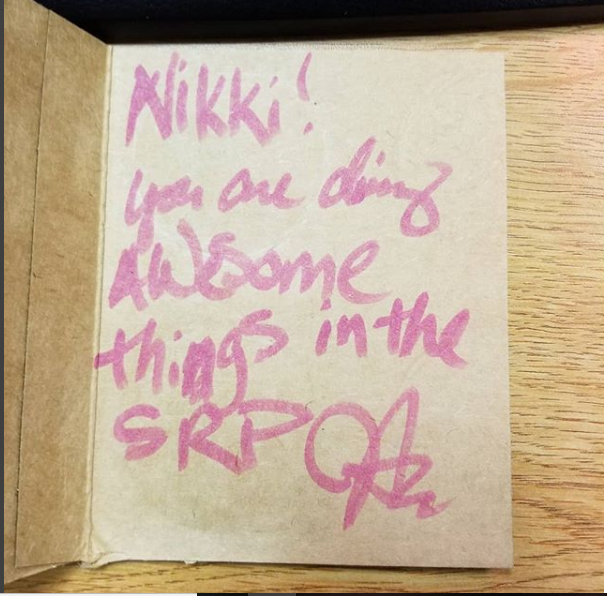 Nikki!
you are doing
AWesome
things in the
SRP